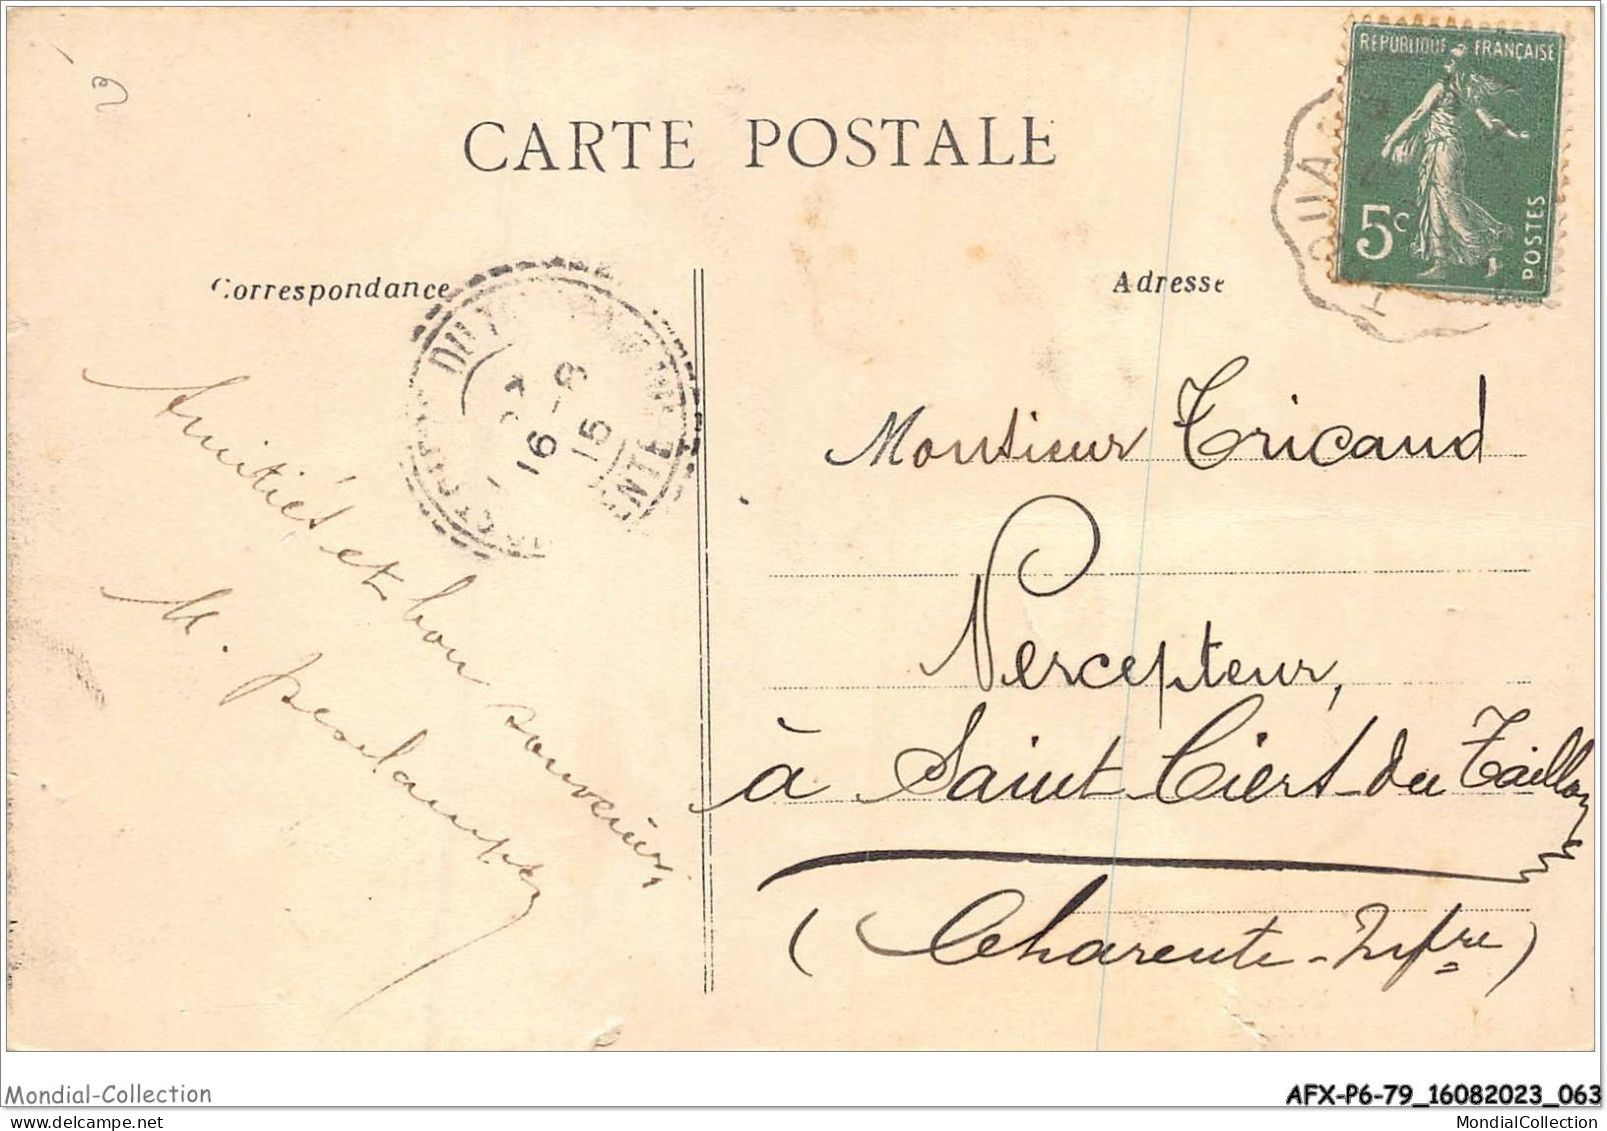 CARTE POSTALE
REPUBLIQUE FRANÇAISE
5c
POSTES
Correspondance
Adresse
16-8
15
Amitiés et bon souvenir,
M.
Monsieur Tricaud
Percepteur,
à Saint Ciers-du Taillon
(Charente-Infre)
Mondial-Collection
AFX-P6-79_16082023_063
MondialCollection